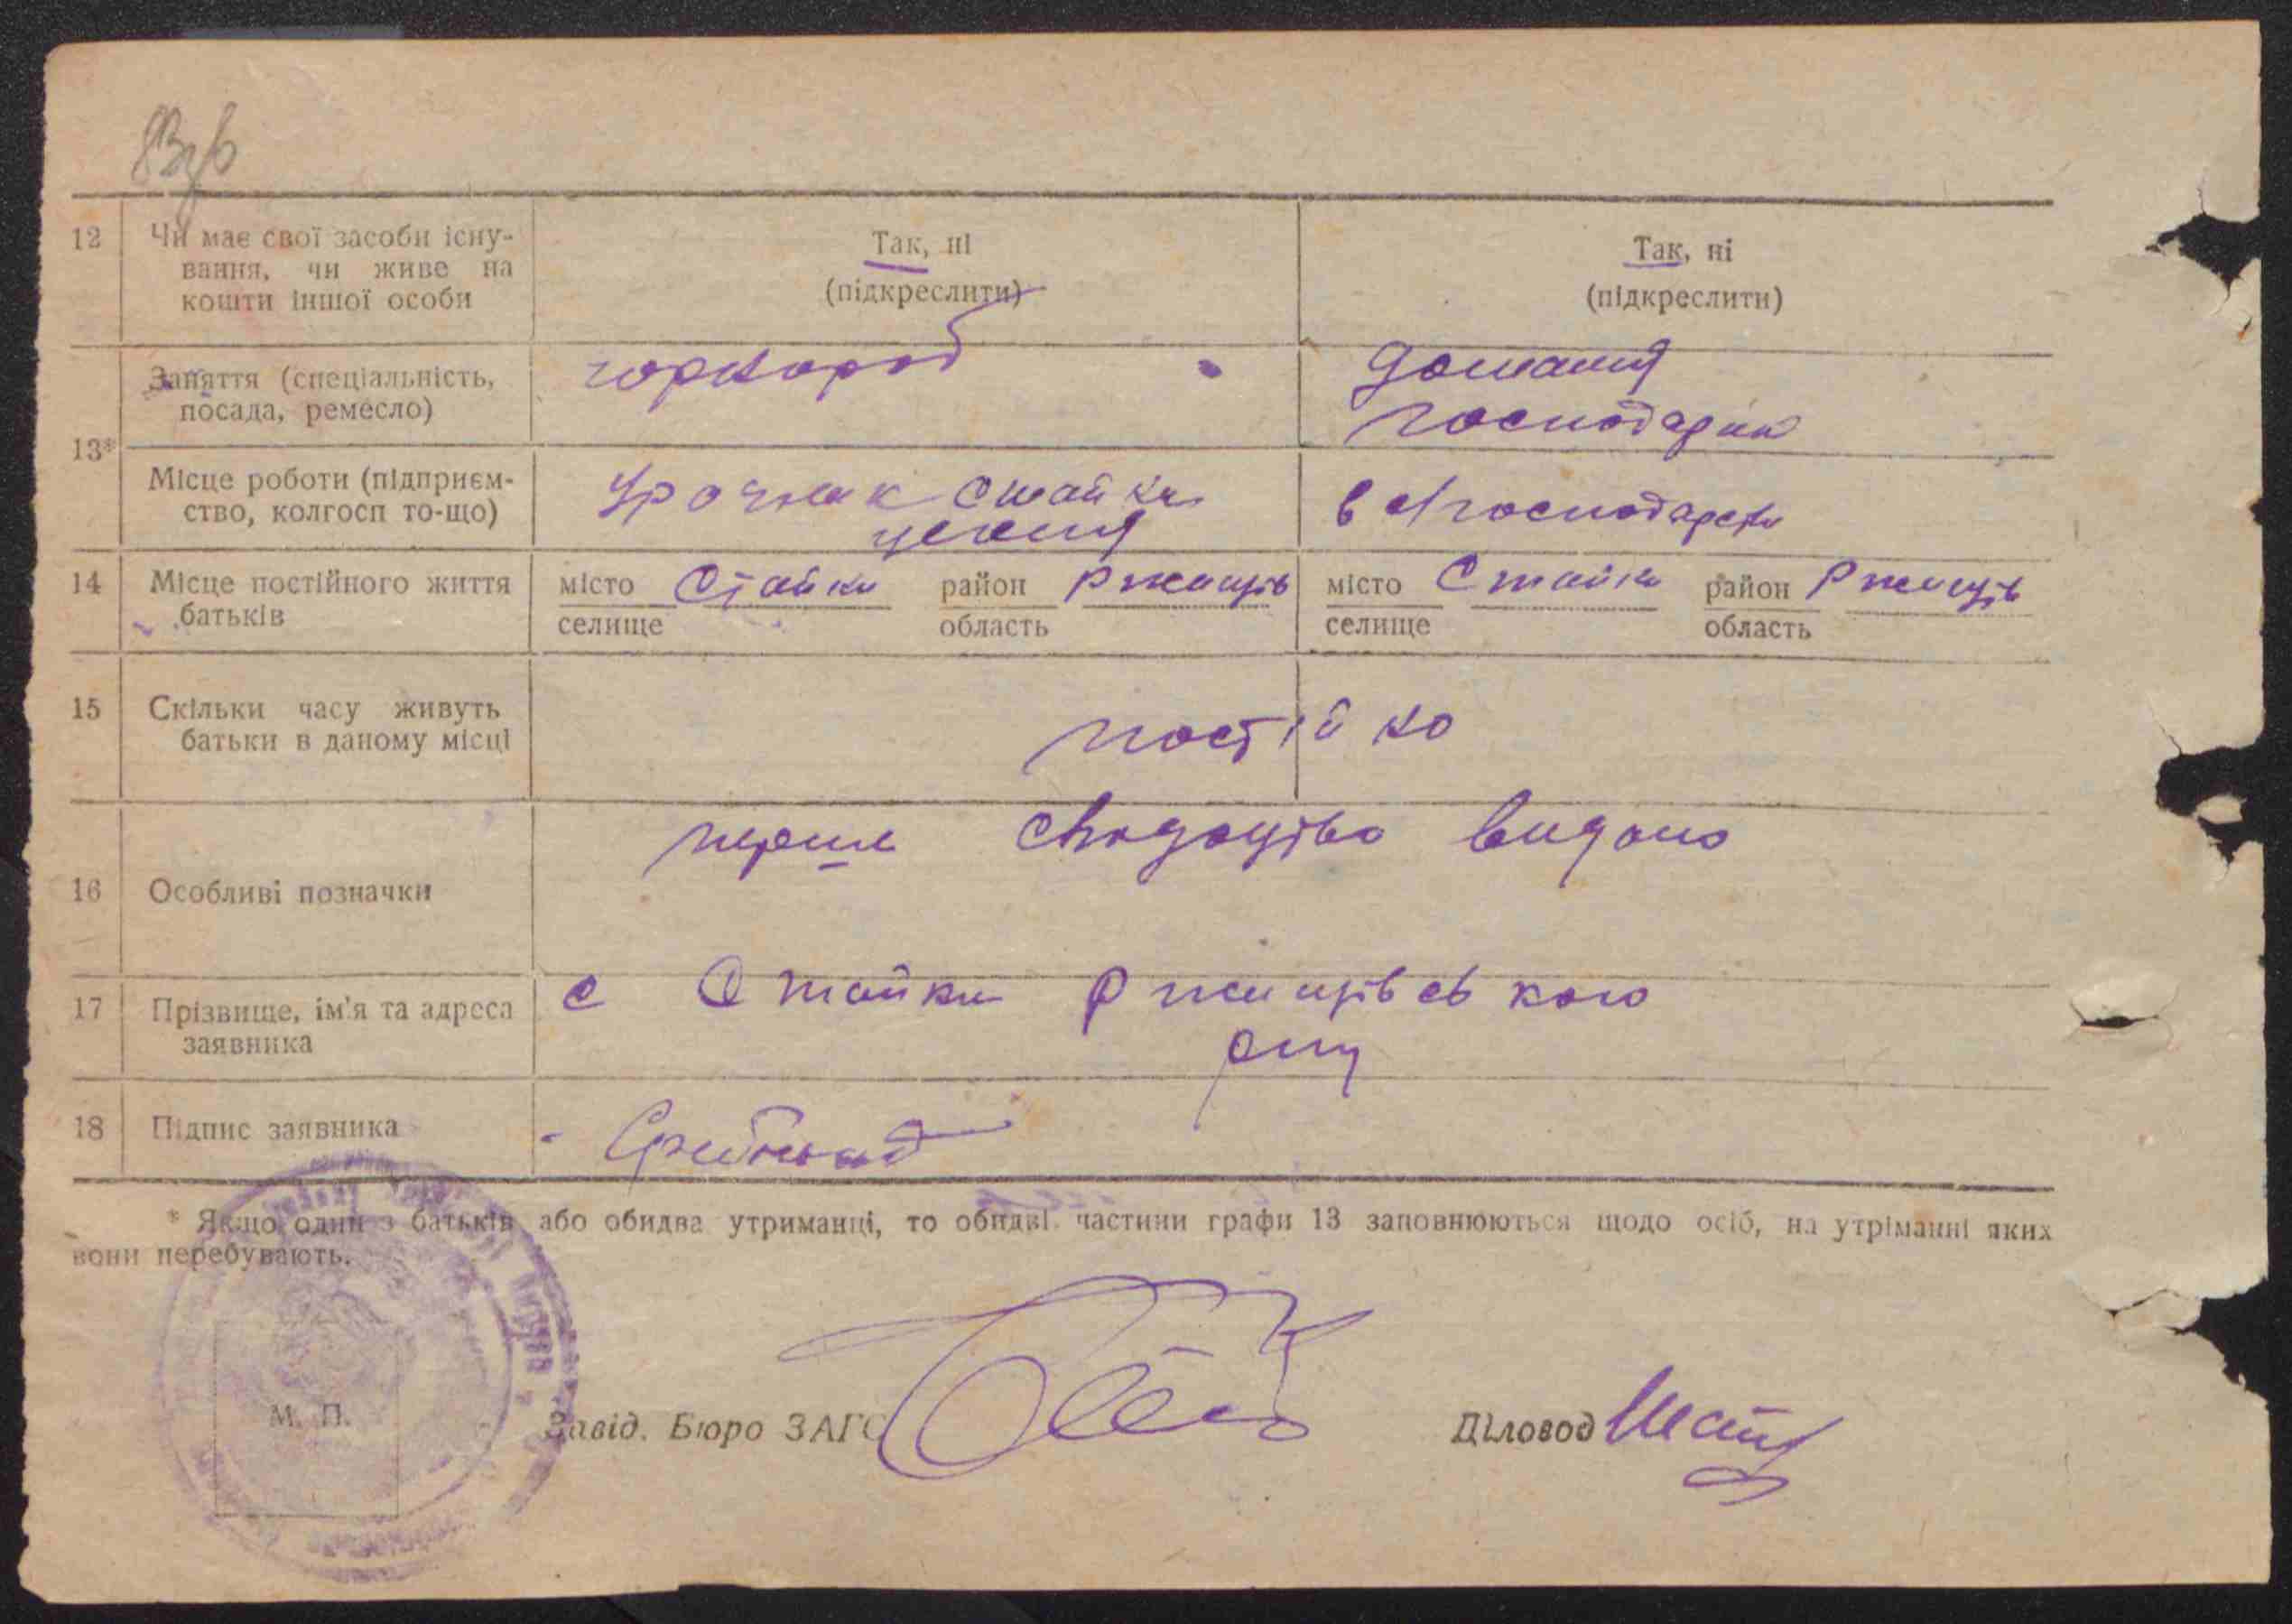 12 Чи має свої засоби існу-
вання, чи живе на
кошти іншої особи
Так, ні
(підкреслити)
Так, ні
(підкреслити)
13*
Заняття (спеціальність,
посада, ремесло)
домашня
господарка
Місце роботи (підприєм-
ство, колгосп то-що)
Стайки
в госнодарстві
14 Місце постійного життя
батьків
місто Стайки район Ржищів
селище область
місто Стайки район Ржищів
селище область
15 Скільки часу живуть
батьки в даному місці
постійно
16 Особливі позначки
перше свідоцтво видано
17 Прізвище, ім'я та адреса
заявника
с Стайки Ржищівського
р-ну
18 Підпис заявника
* Якщо один з батьків або обидва утриманці, то обидві частини графи 13 заповнюються щодо осіб, на утріманні яких
вони перебувають.
М. П.
Завід. Бюро ЗАГС
Діловод